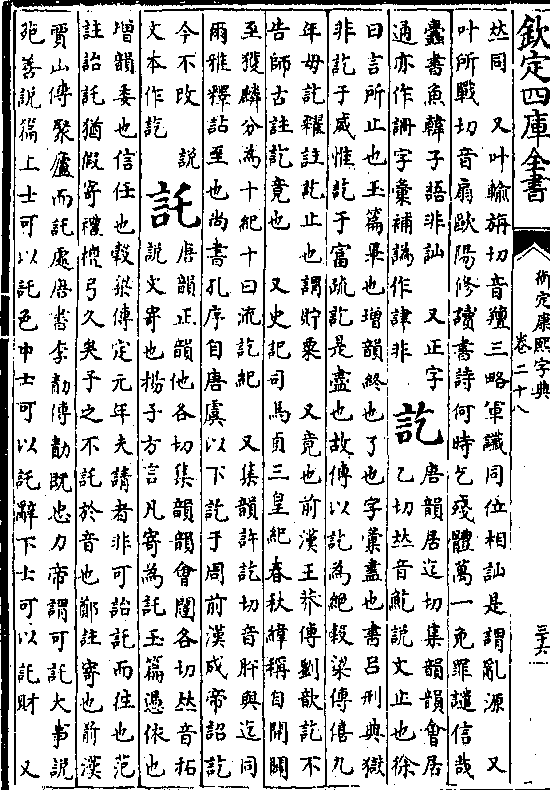 欽定四庫全書
御定康熙字典
卷二十八
𠀤同　又叶輸旃切音羶三略軍讖同位相訕是謂亂源　又
叶所戰切音扇歐陽修讀書詩何時乞殘體萬一免罪譴信哉
蠹書魚韓子語非訕　又正字
通亦作訕字彙補譌作誎非
訖
唐韻居迄切集韻韻會居
乙切𠀤音𩚬說文止也徐
曰言所止也玉篇畢也增韻終也了也字彙盡也書呂刑典獄
非訖于威惟訖于富疏訖是盡也故傳以訖為絕穀梁傳僖九
年毋訖糴註訖止也謂貯粟　又竟也前漢王莽傳劉歆訖不
告師古註訖竟也　又史記司馬貞三皇紀春秋緯稱自開闢
至獲麟分為十紀十曰流訖紀　又集韻許訖切音肸與迄同
爾雅釋詁至也尚書孔序自唐虞以下訖于周前漢成帝詔訖
今不改　說
文本作訖
託
唐韻正韻他各切集韻韻會闥各切𠀤音拓
說文寄也揚子方言凡寄為託玉篇憑依也
增韻委也信任也穀梁傳定元年夫請者非可詒託而往也范
註詒託猶假寄禮檀弓久矣予之不託於音也鄭註寄也前漢
賈山傳聚廬而託處唐書李勣傳勣既忠力帝謂可託大事說
苑善說篇上士可以託色中士可以託辭下士可以託財　又